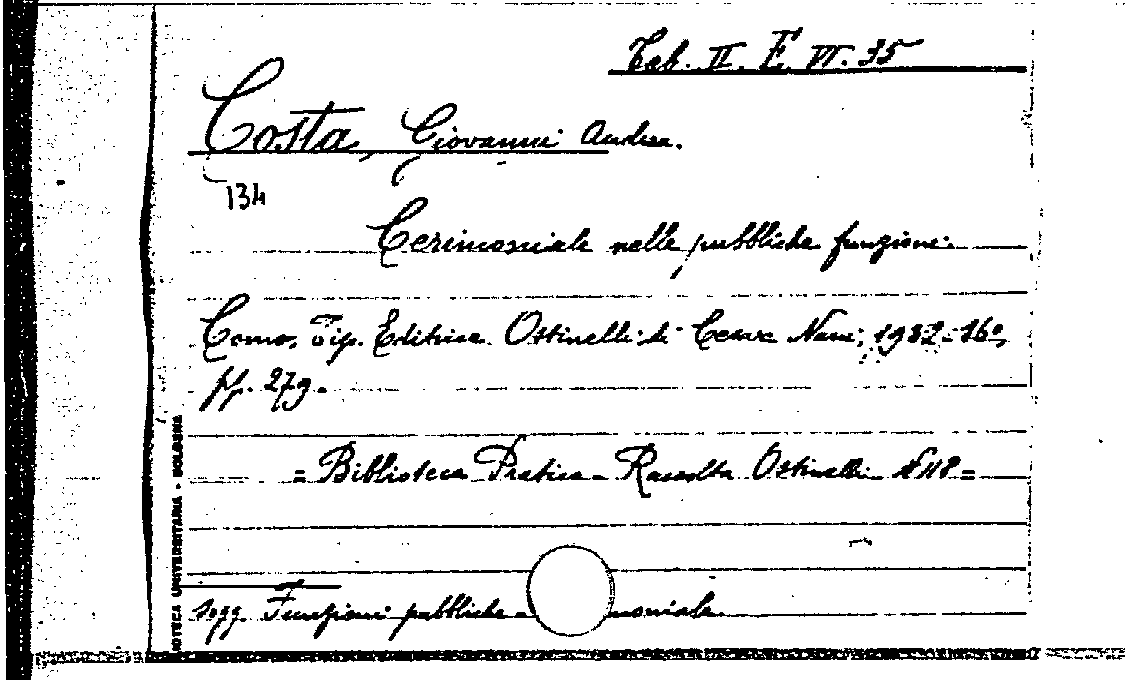 Tab. II. F. VI. 35
Costa, Giovanni Andrea.
134
Cerimoniale nelle pubbliche funzioni.
Como, Tip. Editrice Ostinelli di Cesare Nani, 1932-16º,
pp. 279.
= Biblioteca Pratica - Raccolta Ostinelli N 118 =
sogg. Funzioni pubbliche - moniale.
IOTECA UNIVERSITARIA - BOLOGNA